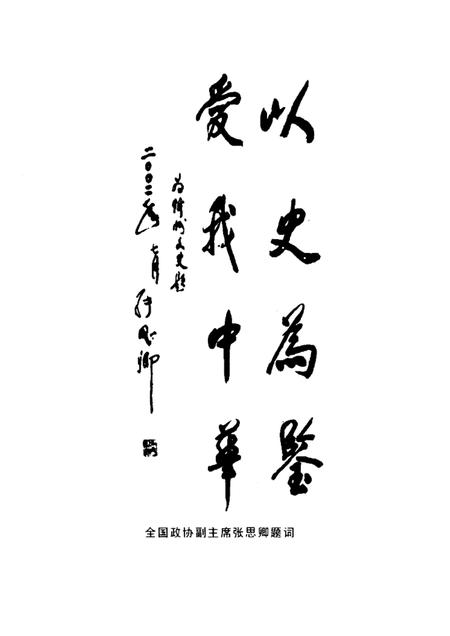 以史為鑒
愛我中華
为
州文史题
二〇〇二年七月
张思卿
全国政协副主席张思卿题词